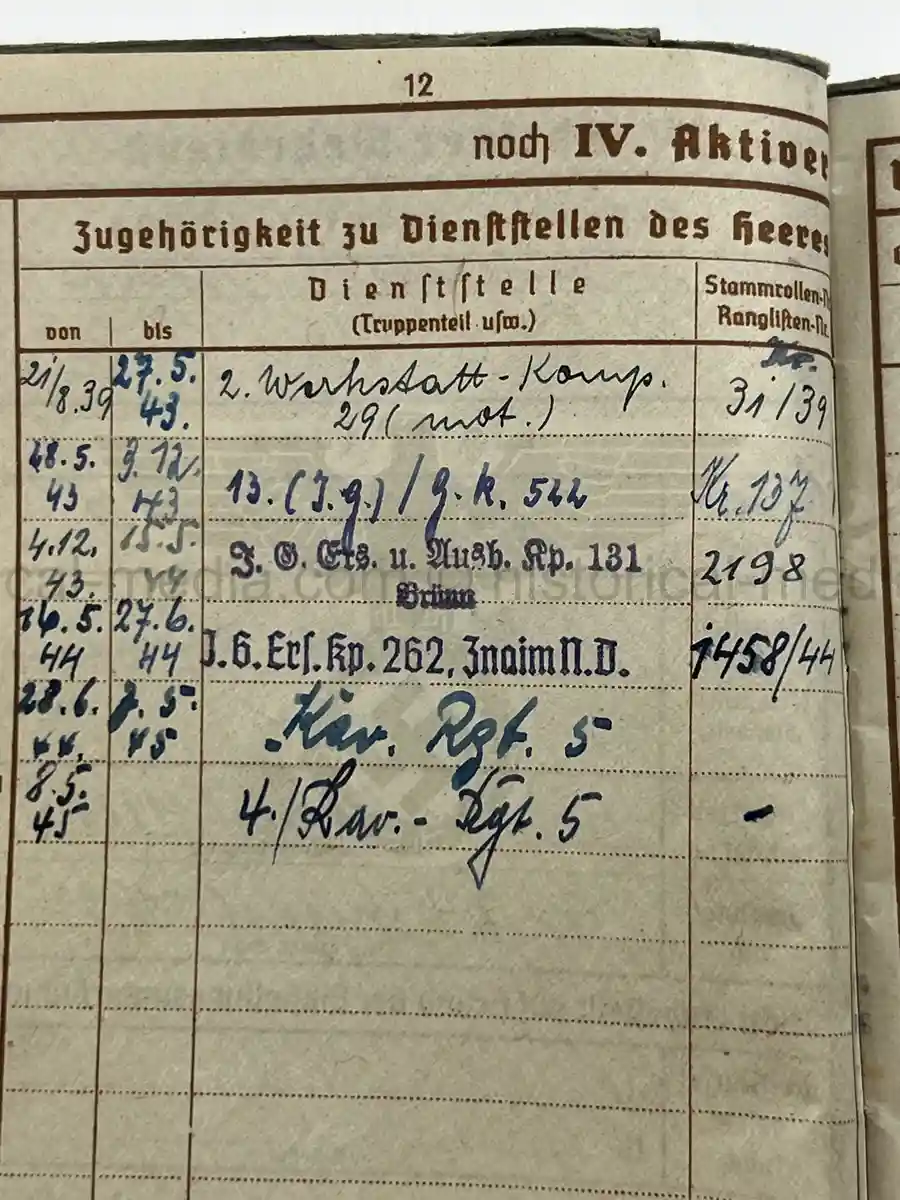 12
noch IV. Aktiver
Zugehörigkeit zu Dienststellen des Heeres
von bis
Dienststelle
(Truppenteil usw.)
Stammrollen-N
Ranglisten-Nr.
21/8.39 27.5.43. 2. Werkstatt-Komp. 29 (mot.) 31/39
28.5.43 3.12.43 13. (J.g.) / g.k. 522 Nr. 137
4.12.43. 15.5.44 J. G. Ers. u. Ausb. Kp. 131 Brünn 2198
16.5.44 27.6.44 J.G. Ers. Kp. 262, Znaim N.D. 1458/44
28.6.44. 7.5.45 Kav. Rgt. 5
8.5.45 4./Kav.-Rgt. 5 -